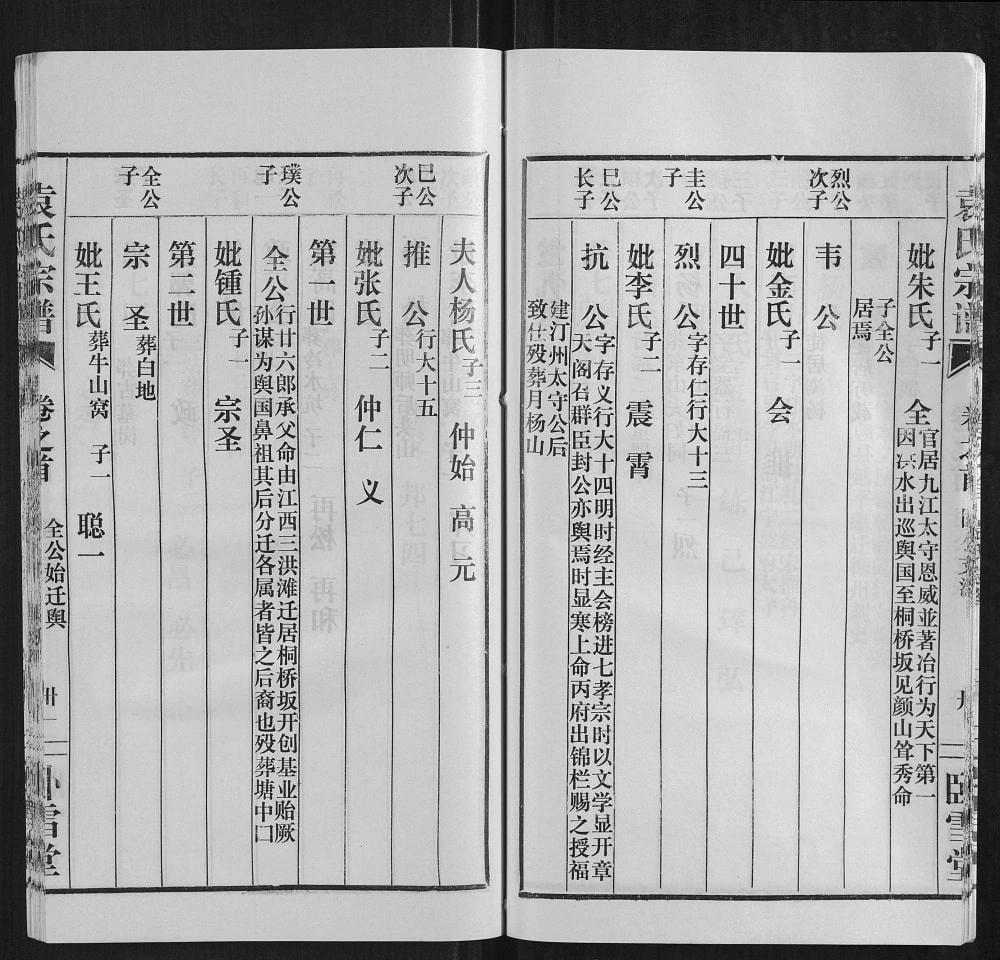 袁氏宗谱
卧雪堂
妣朱氏 子一 全
官居九江太守恩威並著冶行为天下第一
因洪水出巡舆国至桐桥坂见颜山耸秀命
子全公
居焉
烈公
次子
韦公
妣金氏 子二 会
四十世
圭公
子
烈公 字存仁行大十三
妣李氏 子二 震 霄
巳公
长子
抗公 字存义行大十四明时经主会榜进七孝宗时以文学显开章
天阁召群臣封公亦舆焉时显寒上命丙府出锦栏赐之授福
建汀州太守公后
致仕殁葬月杨山
夫人杨氏 子三 仲始 高 元
巳公
次子
推公 行大十五
妣张氏 子二 仲仁 义
第一世
璞公
子
全公 行廿六郎承父命由江西三洪滩迁居桐桥坂开创基业贻厥
孙谋为舆国鼻祖其后分迁各属者皆之后裔也殁葬塘中囗
妣锺氏 子一 宗圣
第二世
全公
子
宗圣 葬白地
妣王氏 葬牛山窝 子一 聪一
袁氏宗谱 卷之首 全公始迁舆 卅一 卧雪堂